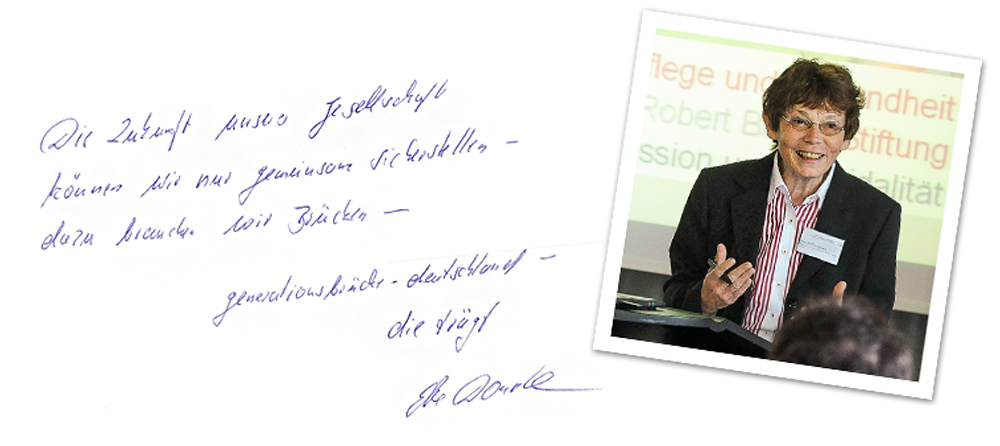 Die Zukunft unserer Gesellschaft
können wir nur gemeinsam sicherstellen –
dazu brauchen wir Brücken –
generationsbrücke-deutschland –
die trägt
flege und ndheit
Robert B Stiftung
ssion u dalität